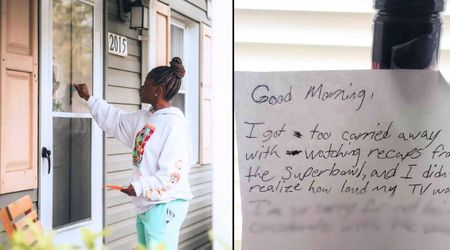 2015
Good Morning,
I got too carried away
with watching recaps fro
the Superbowl, and I didn
realize how loud my TV wa